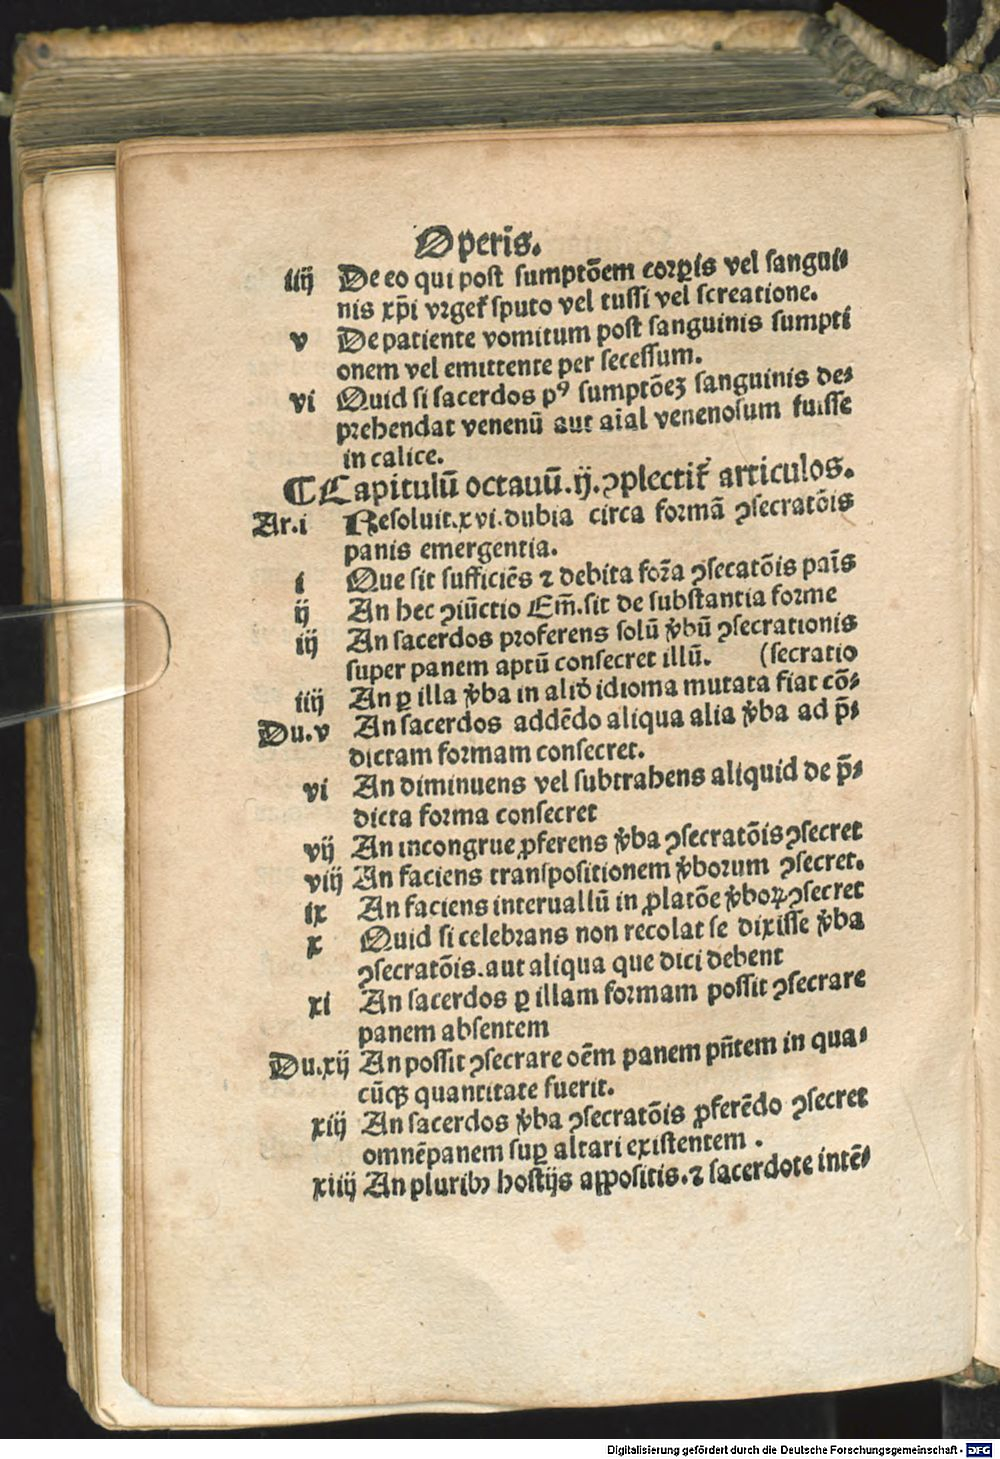 Operis.
iiij De eo qui post sumptōem corꝑis vel sangui-
nis xp̄i vrget᷑ sputo vel tussi vel screatione.
v De patiente vomitum post sanguinis sumpti
onem vel emittente per secessum.
vi Quid si sacerdos pꝰ sumptōeꝫ sanguinis de-
prehendat venenū aut aīal venenosum fuisse
in calice.
¶ Capitulū octauū .ij. ꝯplectit᷑ articulos.
Ar.i Resoluit .xvi. dubia circa formā ꝯsecratōis
panis emergentia.
i Que sit sufficiēs ⁊ debita for̄a ꝯsecatōis pais̄
ij An hec ꝯiūctio Em̄. sit de substantia forme
iij An sacerdos proferens solū v̓bū ꝯsecrationis
super panem aptū consecret illū. (secratio
iiij An ꝑ illa v̓ba in aliđ idioma mutata fiat cō-
Du.v An sacerdos addēdo aliqua alia v̓ba ad p̄-
dictam formam consecret.
vi An diminuens vel subtrahens aliquid de p̄-
dicta forma consecret
vij An incongrue ꝓferens v̓ba ꝯsecratōis ꝯsecret
viij An faciens transpositionem v̓borum ꝯsecret.
ix An faciens interuallū in ꝓlatōe v̓boꝝ ꝯsecret
x Quid si celebrans non recolat se dixisse v̓ba
ꝯsecratōis. aut aliqua que dici debent
xi An sacerdos ꝑ illam formam possit ꝯsecrare
panem absentem
Du.xij An possit ꝯsecrare oēm panem pn̄tem in qua-
cūqꝫ quantitate fuerit.
xiij An sacerdos v̓ba ꝯsecratōis ꝓferēdo ꝯsecret
omnē panem suꝑ altari existentem .
xiiij An pluribꝰ hostijs aꝓpositis. ⁊ sacerdote intē-
Digitalisierung gefördert durch die Deutsche Forschungsgemeinschaft - DFG